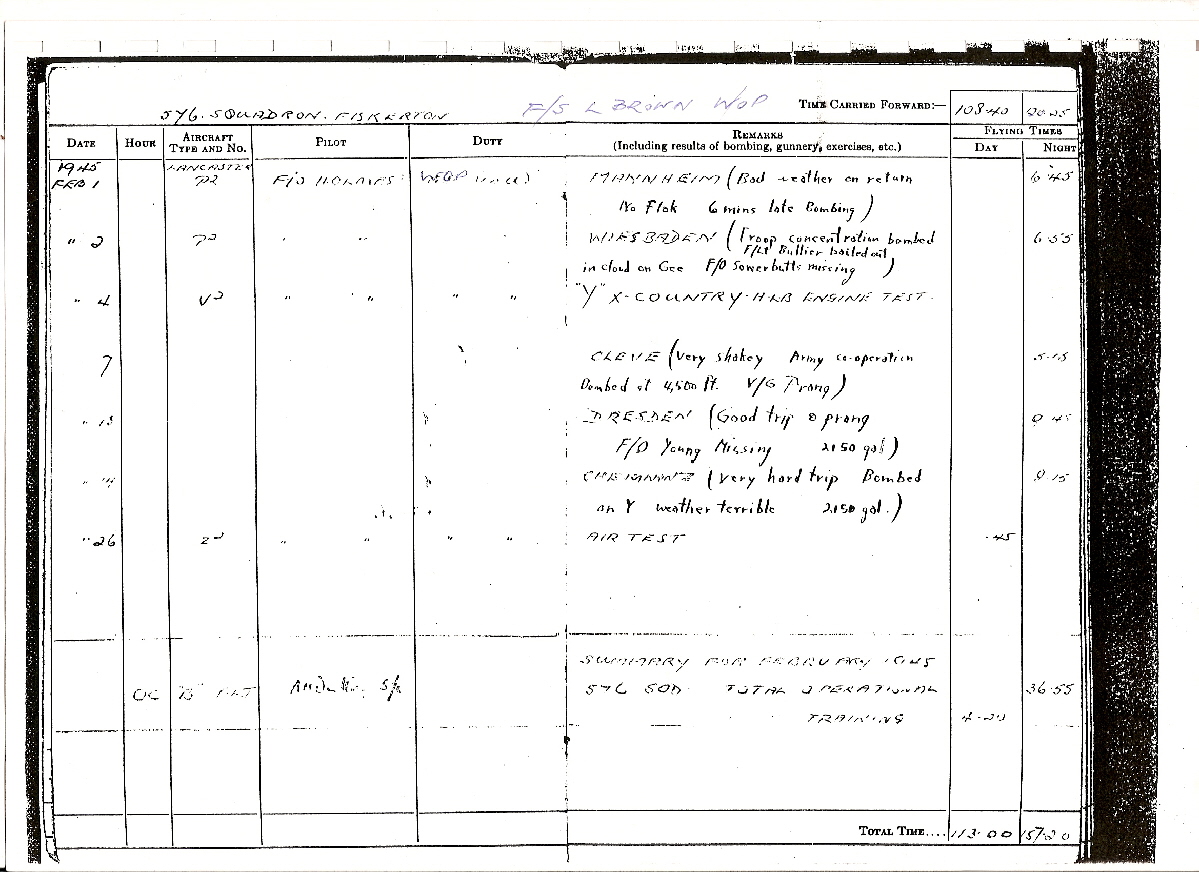 576. SQUADRON. FISKERTON F/S L BROWN WOP TIME CARRIED FORWARD:—
108.40
DATE HOUR AIRCRAFT TYPE AND No. PILOT DUTY REMARKS (Including results of bombing, gunnery, exercises, etc.) FLYING TIMES DAY NIGHT
1945 LANCASTER
FEB 1 F/O HOLMES MANNHEIM (Bad weather on return 6.45
No Flak 6 mins late Bombing)
" 2 " " WIESBADEN (Troop concentration bombed 6.55
F/Lt Buttier bailed out
in cloud on Gee F/O Sowerbutts missing)
" 4 V2 " " " " "Y" X-COUNTRY-H-LB ENGINE TEST.
7 " CLEVE (Very shakey Army co-operation 5.15
Bombed at 4,500 ft. V/G Prang)
" 13 " DRESDEN (Good trip & prang 9.45
F/O Young Missing 2150 gal)
" 14 " CHEMNITZ (Very hard trip Bombed
on Y weather terrible 2,150 gal.)
" 26 " " " " AIR TEST .45
SUMMARY FOR FEBRUARY 1945
OC "B" FLT S/L 576 SQD. TOTAL OPERATIONAL 36.55
TRAINING 4.20
TOTAL TIME.... 113.00 157.20